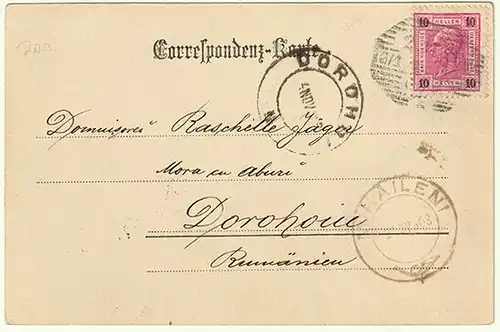 Correspondenz-Karte
10 HELLER 10
10 10
DOROHOI
4 NOV
Domnișorei Raschelle Jäger
Mora cu Aburi
Dorohoiu
Rumänien
MIHAILENI